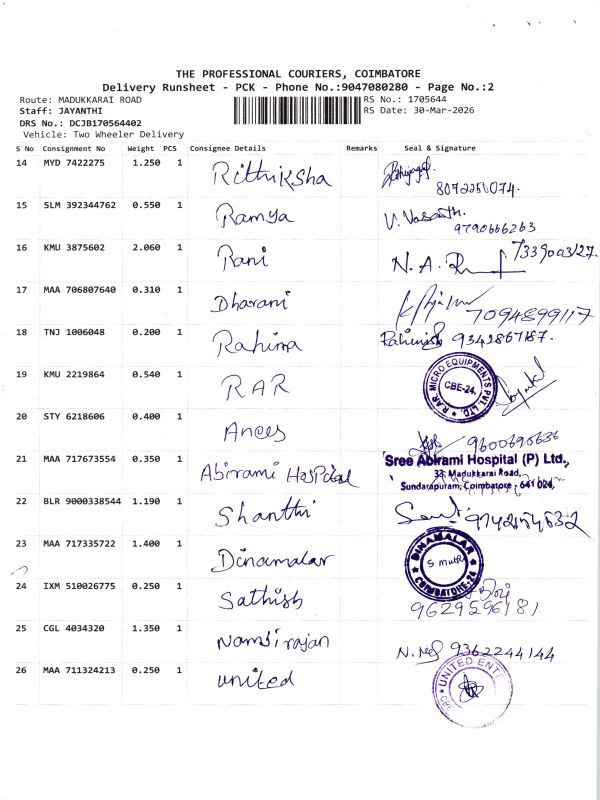 THE PROFESSIONAL COURIERS, COIMBATORE
Delivery Runsheet - PCK - Phone No.:9047080280 - Page No.:2
Route: MADUKKARAI ROAD RS No.: 1705644
Staff: JAYANTHI RS Date: 30-Mar-2026
DRS No.: DCJB170564402
Vehicle: Two Wheeler Delivery
S No Consignment No Weight PCS Consignee Details Remarks Seal & Signature
14 MYD 7422275 1.250 1 Rithiksha
15 SLM 392344762 0.550 1 Ramya V. Vasanth.
9790666263
16 KMU 3875602 2.060 1 Rani N. A. 7339003127.
17 MAA 706807640 0.310 1 Dharani
7094899117
18 TNJ 1006048 0.200 1 Rahima 9342867187.
19 KMU 2219864 0.540 1 RAR RAR MICRO EQUIPMENTS PVT. LTD. CBE-24.
20 STY 6218606 0.400 1 Anees 9600690636
21 MAA 717673554 0.350 1 Abirami Hospital Sree Abirami Hospital (P) Ltd.,
33, Madukkarai Road,
Sundarapuram, Coimbatore - 641 024.
22 BLR 9000338544 1.190 1 Shanthi
23 MAA 717335722 1.400 1 Dinamalar DINAMALAR COIMBATORE-24
24 IXM 510026775 0.250 1 Sathish
9629596181
25 CGL 4034320 1.350 1 Nambirajan 9362244144
26 MAA 711324213 0.250 1 united UNITED ENT CBE